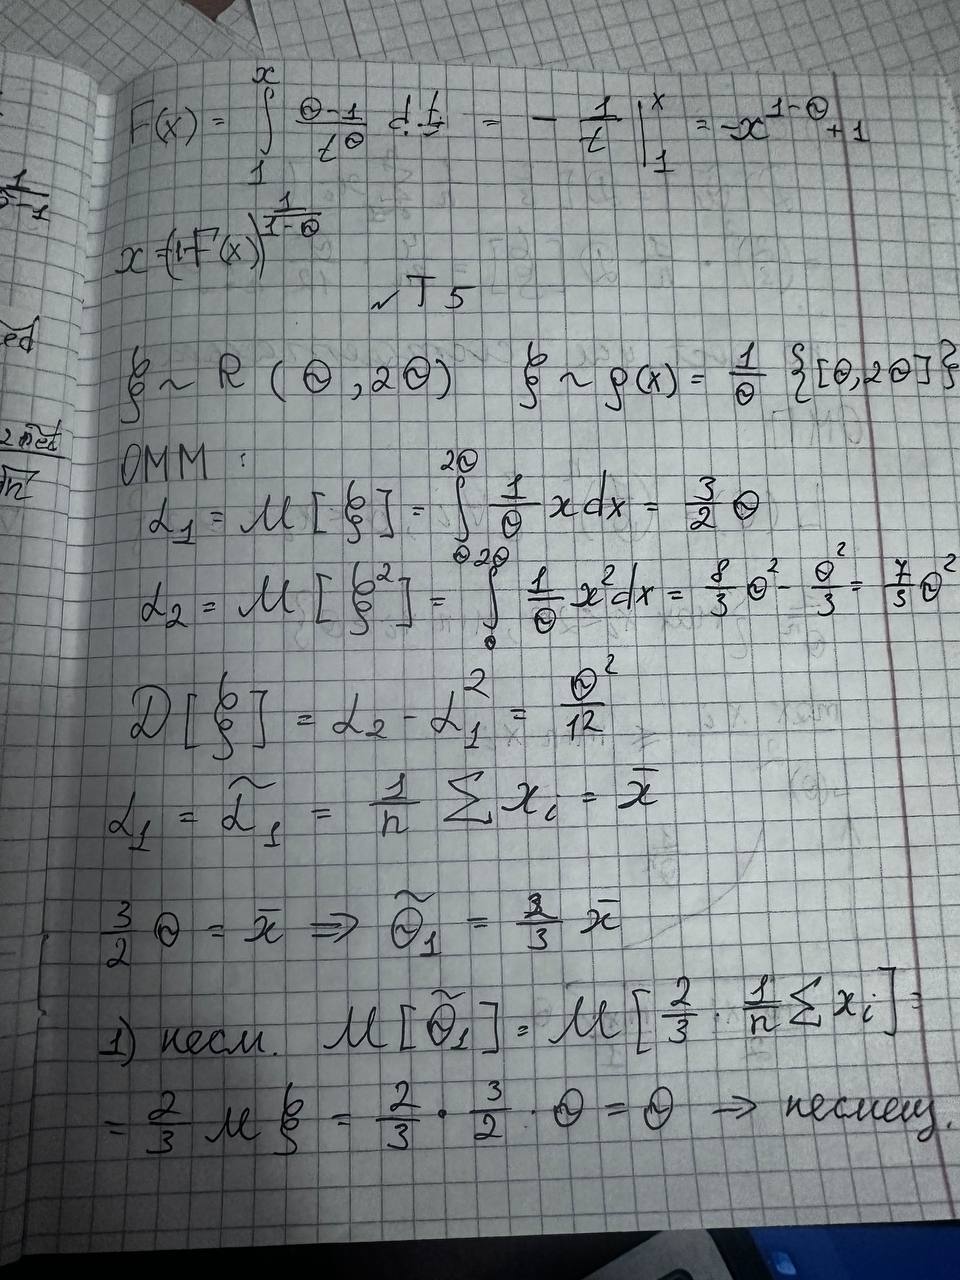 F(x) = ∫₁ˣ (θ-1)/t^θ dt = - 1/t |₁ˣ = -x^(1-θ) + 1
x = (1-F(x))^(1/(1-θ))
√ T 5
ξ ~ R (θ, 2θ) ξ ~ ρ(x) = 1/θ {[θ, 2θ]}
ОММ :
α₁ = M[ξ] = ∫_θ^2θ 1/θ x dx = 3/2 θ
α₂ = M[ξ²] = ∫_θ^2θ 1/θ x² dx = 8/3 θ² - θ²/3 = 7/3 θ²
D[ξ] = α₂ - α₁² = θ²/12
α₁ = α̃₁ = 1/n ∑ xᵢ = x̄
3/2 θ = x̄ ⇒ θ̃₁ = 2/3 x̄
1) несм. M[θ̃₁] = M[2/3 · 1/n ∑ xᵢ] =
= 2/3 M ξ = 2/3 · 3/2 · θ = θ → несмещ.